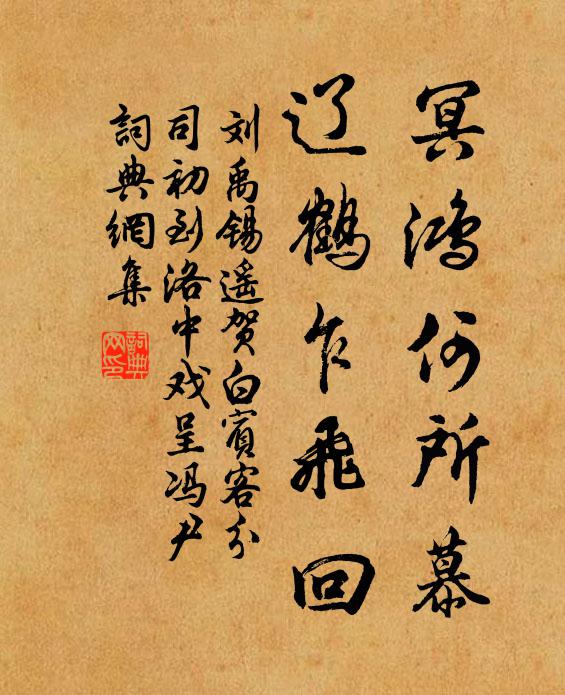 冥鸿何所慕
辽鹤乍飞回
刘禹锡遥贺白宾客分
司初到洛中戏呈冯尹
词典網集
詞典
网印